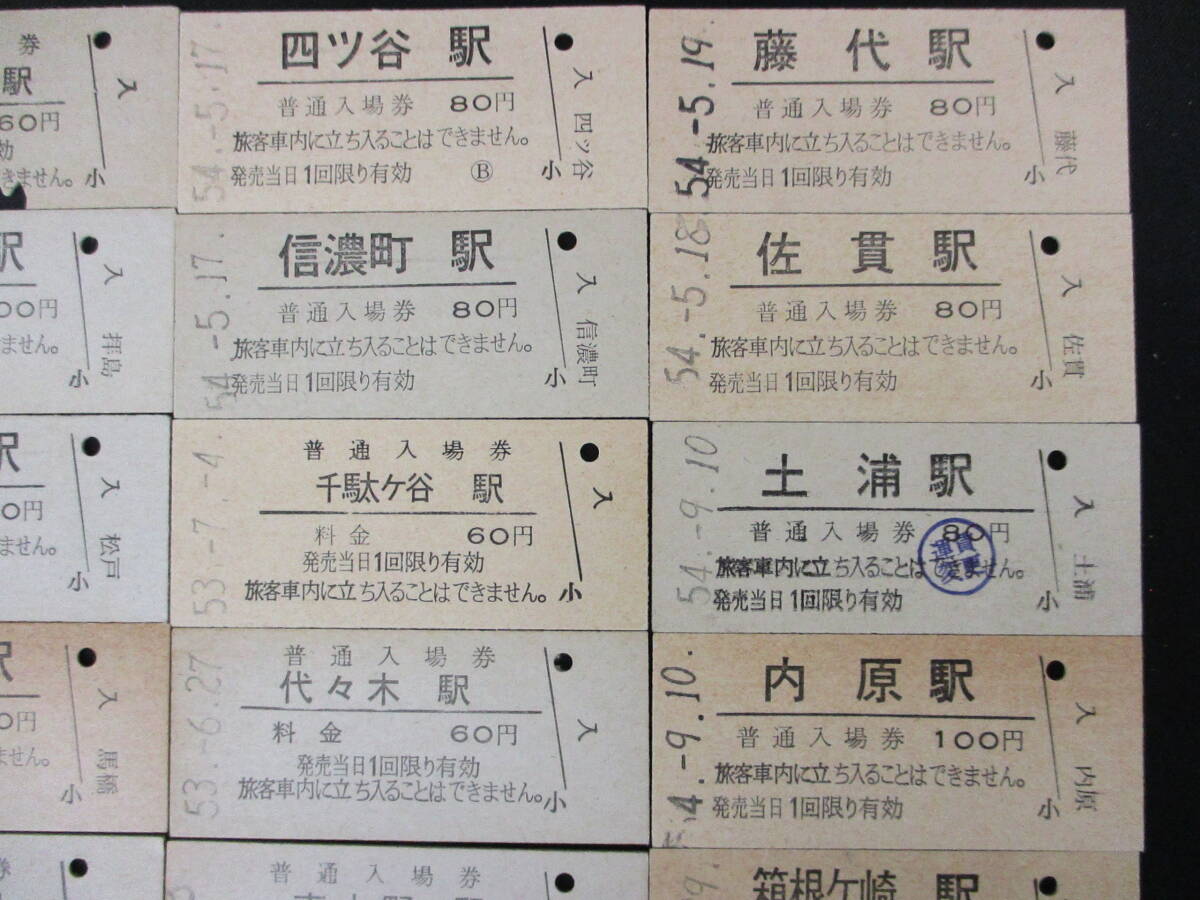 券
駅
60円
効
きません。
入
小
駅
00円
ません。
入
拝島
小
駅
0円
ません。
入
松戸
小
駅
0円
ません。
入
馬橋
小
券
54.-5.17.
四ツ谷 駅
普通入場券 80円
旅客車内に立ち入ることはできません。
発売当日1回限り有効 Ⓑ
入
四ッ谷
小
54.-5.17.
信濃町 駅
普通入場券 80円
旅客車内に立ち入ることはできません。
発売当日1回限り有効
入
信濃町
小
53.-7.-4.
普通入場券
千駄ケ谷 駅
料金 60円
発売当日1回限り有効
旅客車内に立ち入ることはできません。
入
小
53.-6.27
普通入場券
代々木 駅
料金 60円
発売当日1回限り有効
旅客車内に立ち入ることはできません。
入
小
普通入場券
54.-5.19
藤代駅
普通入場券 80円
旅客車内に立ち入ることはできません。
発売当日1回限り有効
入
藤代
小
54.-5.18
佐貫駅
普通入場券 80円
旅客車内に立ち入ることはできません。
発売当日1回限り有効
入
佐貫
小
54.-9.10
土浦駅
普通入場券 80円
旅客車内に立ち入ることはできません。
発売当日1回限り有効
運賃
変更
入
土浦
小
4.-9.10.
内原駅
普通入場券 100円
旅客車内に立ち入ることはできません。
発売当日1回限り有効
入
内原
小
箱根ケ崎 駅